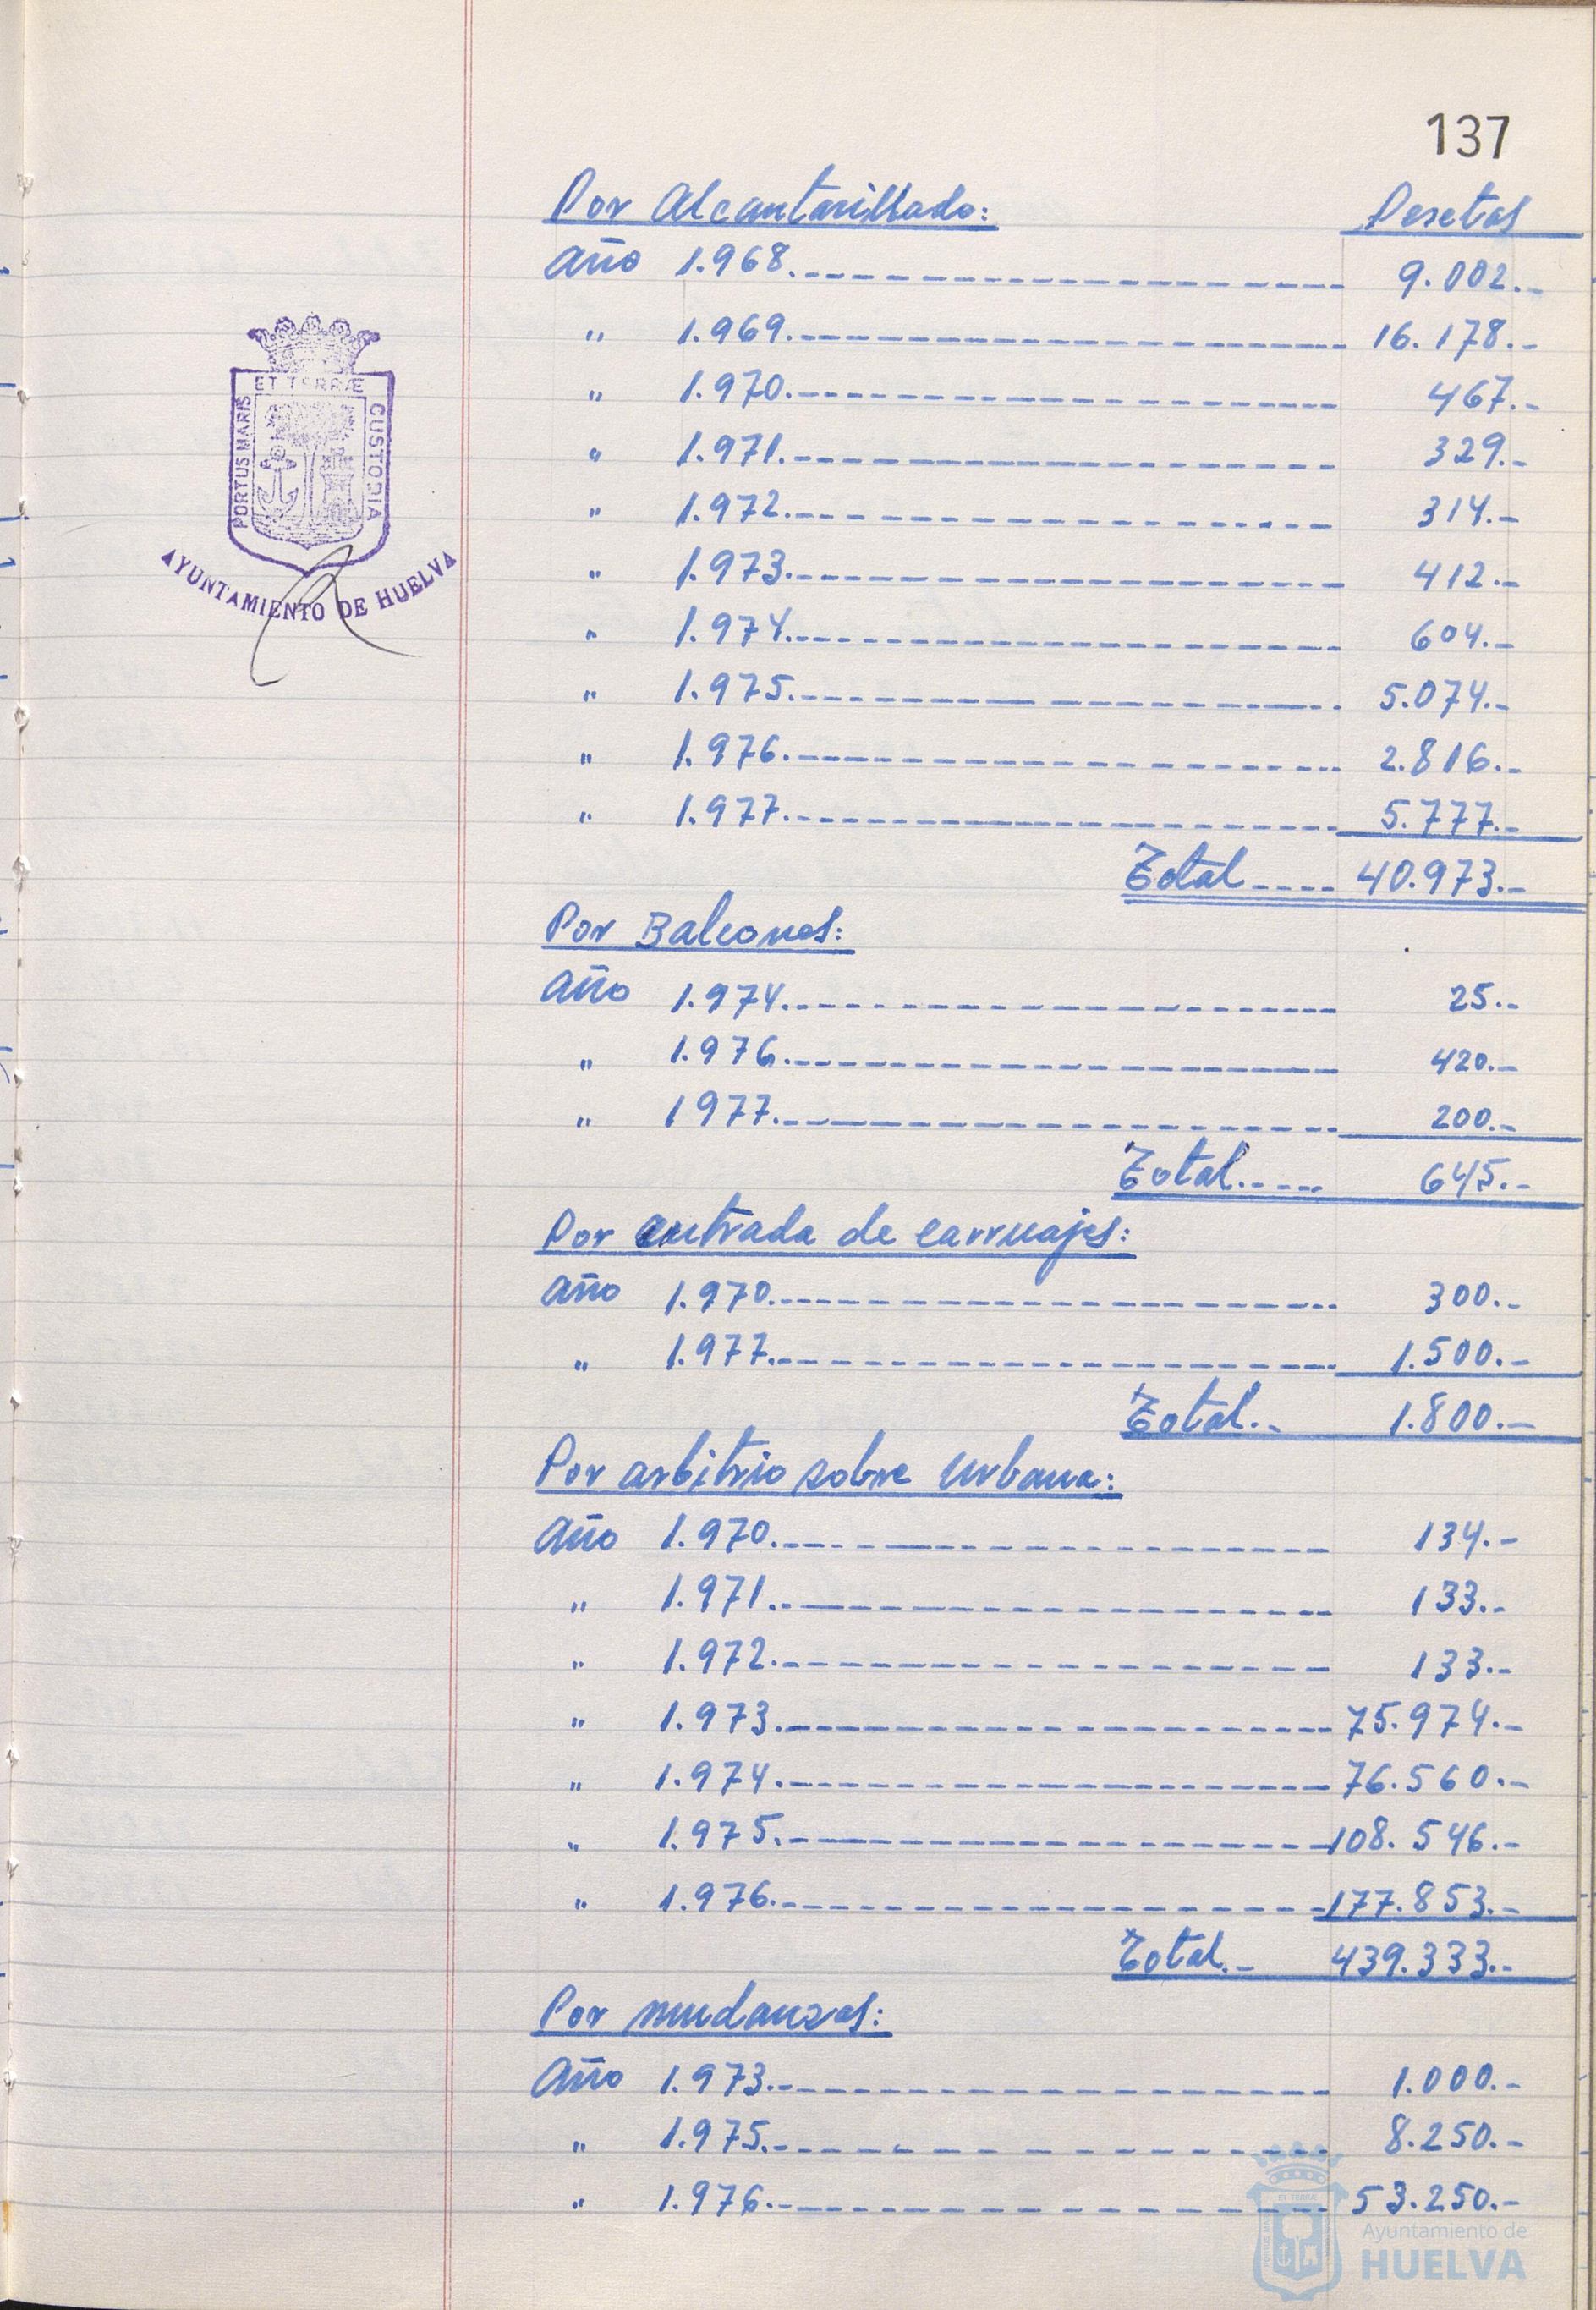 137
Por Alcantarillado: Pesetas
Año 1.968.- 9.002.-
" 1.969.- 16.178.-
" 1.970.- 467.-
" 1.971.- 329.-
" 1.972.- 314.-
" 1.973.- 412.-
" 1.974.- 604.-
" 1.975.- 5.074.-
" 1.976.- 2.816.-
" 1.977.- 5.777.-
Total.- 40.973.-
Por Balcones:
Año 1.974.- 25.-
" 1.976.- 420.-
" 1977.- 200.-
Total.- 645.-
Por entrada de carruajes:
Año 1.970.- 300.-
" 1.977.- 1.500.-
Total.- 1.800.-
Por arbitrio sobre Urbana:
Año 1.970.- 134.-
" 1.971.- 133.-
" 1.972.- 133.-
" 1.973.- 75.974.-
" 1.974.- 76.560.-
" 1.975.- 108.546.-
" 1.976.- 177.853.-
Total.- 439.333.-
Por mudanzas:
Año 1.973.- 1.000.-
" 1.975.- 8.250.-
" 1.976.- 53.250.-
PORTUS MARIS ET TERRÆ CUSTODIA
AYUNTAMIENTO DE HUELVA
Ayuntamiento de
HUELVA